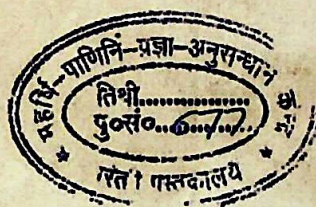 महर्षि-पाणिनि-प्रज्ञा-अनुसन्धान
तिथी..............
पु०सं०...677...